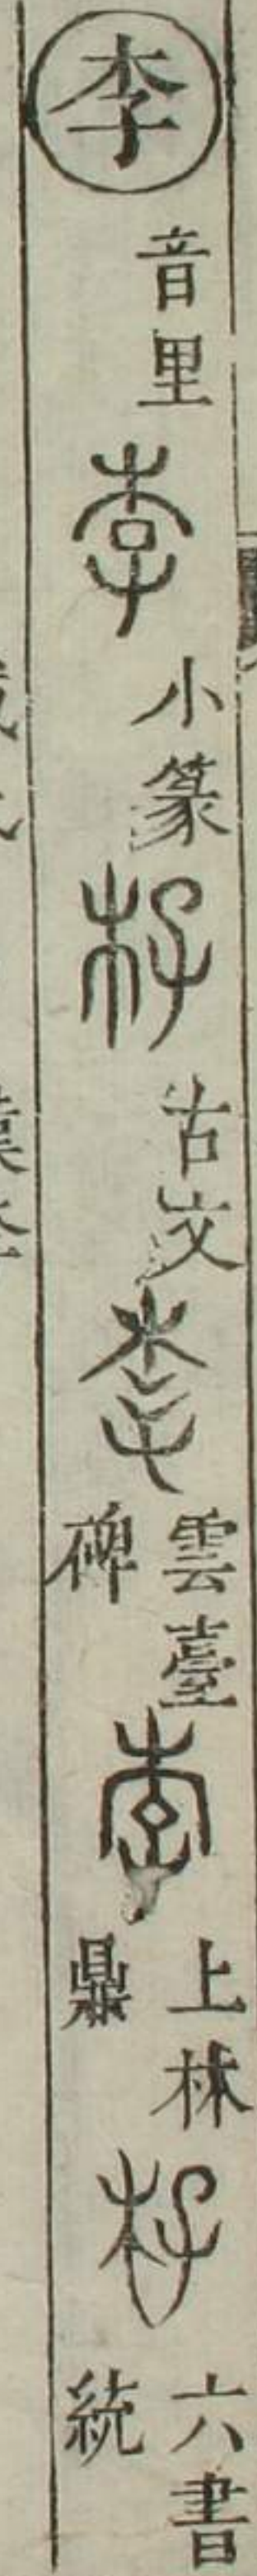 李 音里 李 小篆 杍 古文 李 雲臺碑 李 上林鼎 杍 六書統